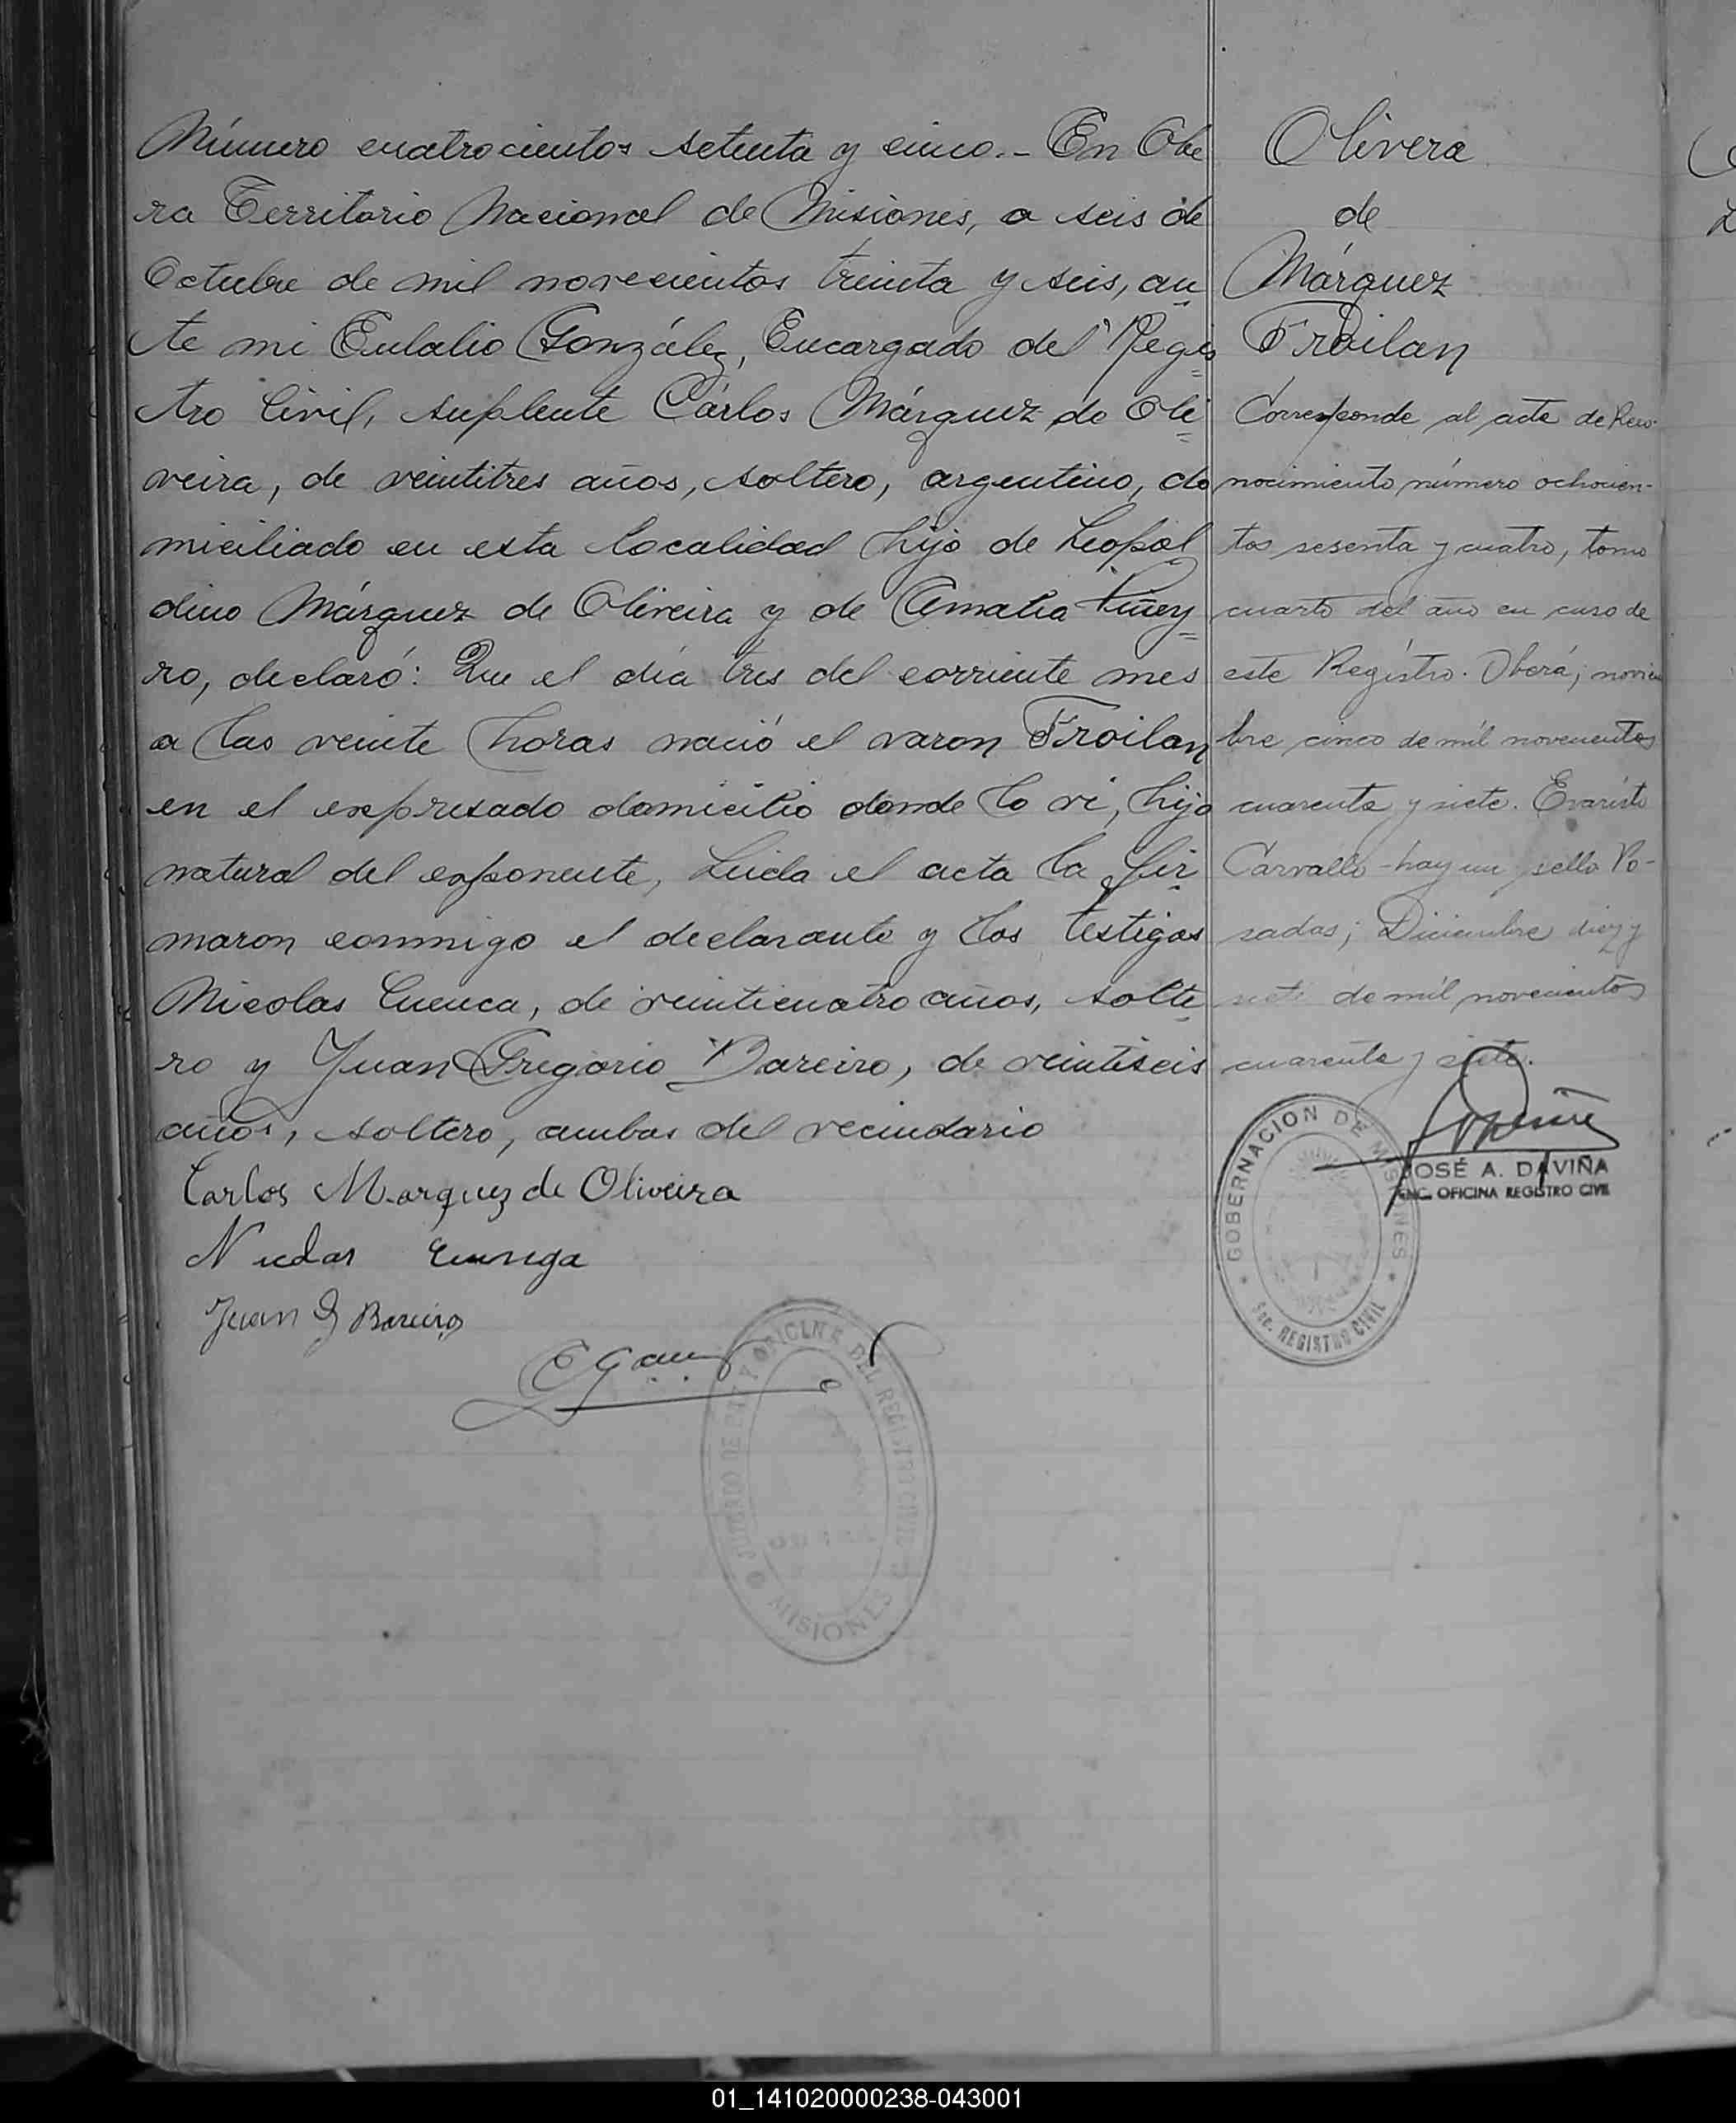 Número cuatrocientos setenta y cinco.- En Obe
ra Territorio Nacional de Misiones, a seis de
Octubre de mil novecientos treinta y seis, an
te mi Eulalio González, Encargado del Regis
tro Civil, suplente Cárlos Márquez de Oli
veira, de veintitres años, soltero, argentino, do
miciliado en esta localidad hijo de Leopol
dino Márquez de Oliveira y de Amalia Piñey
ro, declaró: Que el día tres del corriente mes
a las veinte horas nació el varon Froilan
en el expresado domicilio donde lo vi, hijo
natural del exponente, Leida el acta la fir
maron conmigo el declarante y los testigos
Nicolas Cuenca, de veinticuatro años, solte
ro y Juan Gregorio Bareiro, de veintiseis
años, soltero, ambos del vecindario
Carlos Marquez de Oliveira
Juan G Bareiro
JUZGADO DE PAZ Y OFICINA DEL REGISTRO CIVIL
MISIONES
Olivera
de
Márquez
Froilan
Corresponde al acta de Reco-
nocimiento número ochocien-
tos sesenta y cuatro, tomo
cuarto del año en curso de
este Registro. Oberá, noviem
bre cinco de mil novecientos
cuarenta y siete. Evaristo
Carvallo - hay un sello Po-
sadas; Diciembre diez y
siete de mil novecientos
cuarenta y siete.
GOBERNACION DE MISIONES
Sec. REGISTRO CIVIL
JOSÉ A. DAVIÑA
ENC. OFICINA REGISTRO CIVIL
01_141020000238-043001